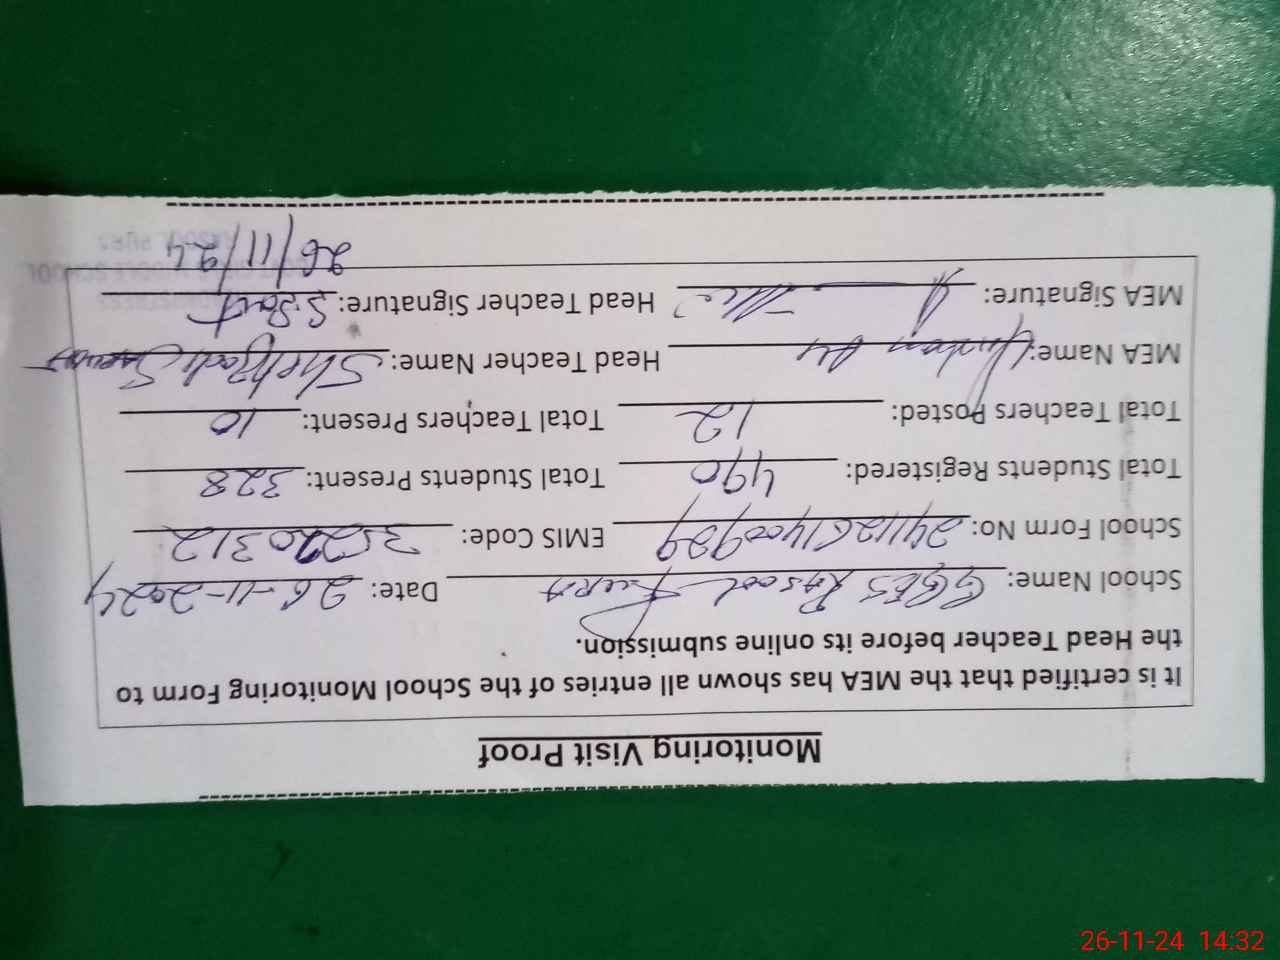 Monitoring Visit Proof
It is certified that the MEA has shown all entries of the School Monitoring Form to
the Head Teacher before its online submission.
School Name: GGES Rasool Pura Date: 26-11-2024
School Form No: 2411261400929 EMIS Code: 35220312
Total Students Registered: 490 Total Students Present: 328
Total Teachers Posted: 12 Total Teachers Present: 10
MEA Name: Head Teacher Name:
MEA Signature: Head Teacher Signature:
26/11/24
26-11-24 14:32